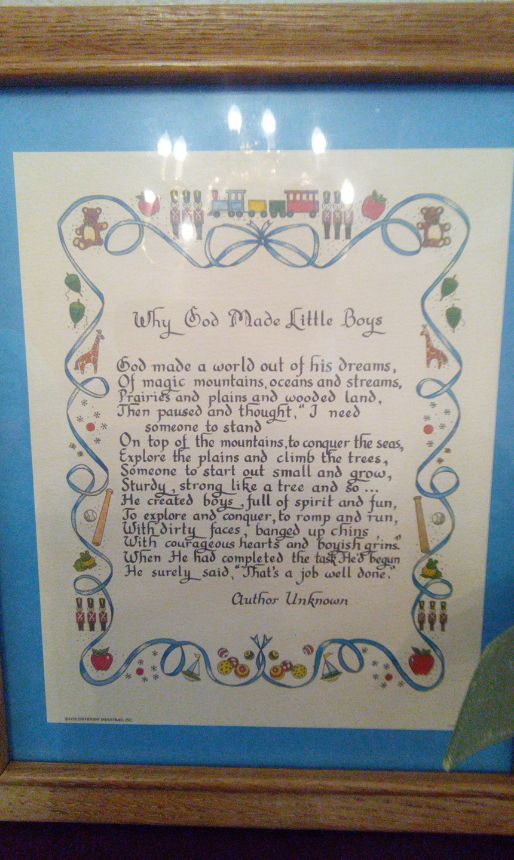 Why God Made Little Boys
God made a world out of his dreams,
Of magic mountains, oceans and streams,
Prairies and plains and wooded land,
Then paused and thought, "I need
someone to stand
On top of the mountains, to conquer the seas,
Explore the plains and climb the trees,
Someone to start out small and grow,
Sturdy, strong like a tree and so ...
He created boys, full of spirit and fun,
To explore and conquer, to romp and run,
With dirty faces, banged up chins,
With courageous hearts and boyish grins."
When He had completed the task He'd begun
He surely said, "That's a job well done."
Author Unknown
INC.